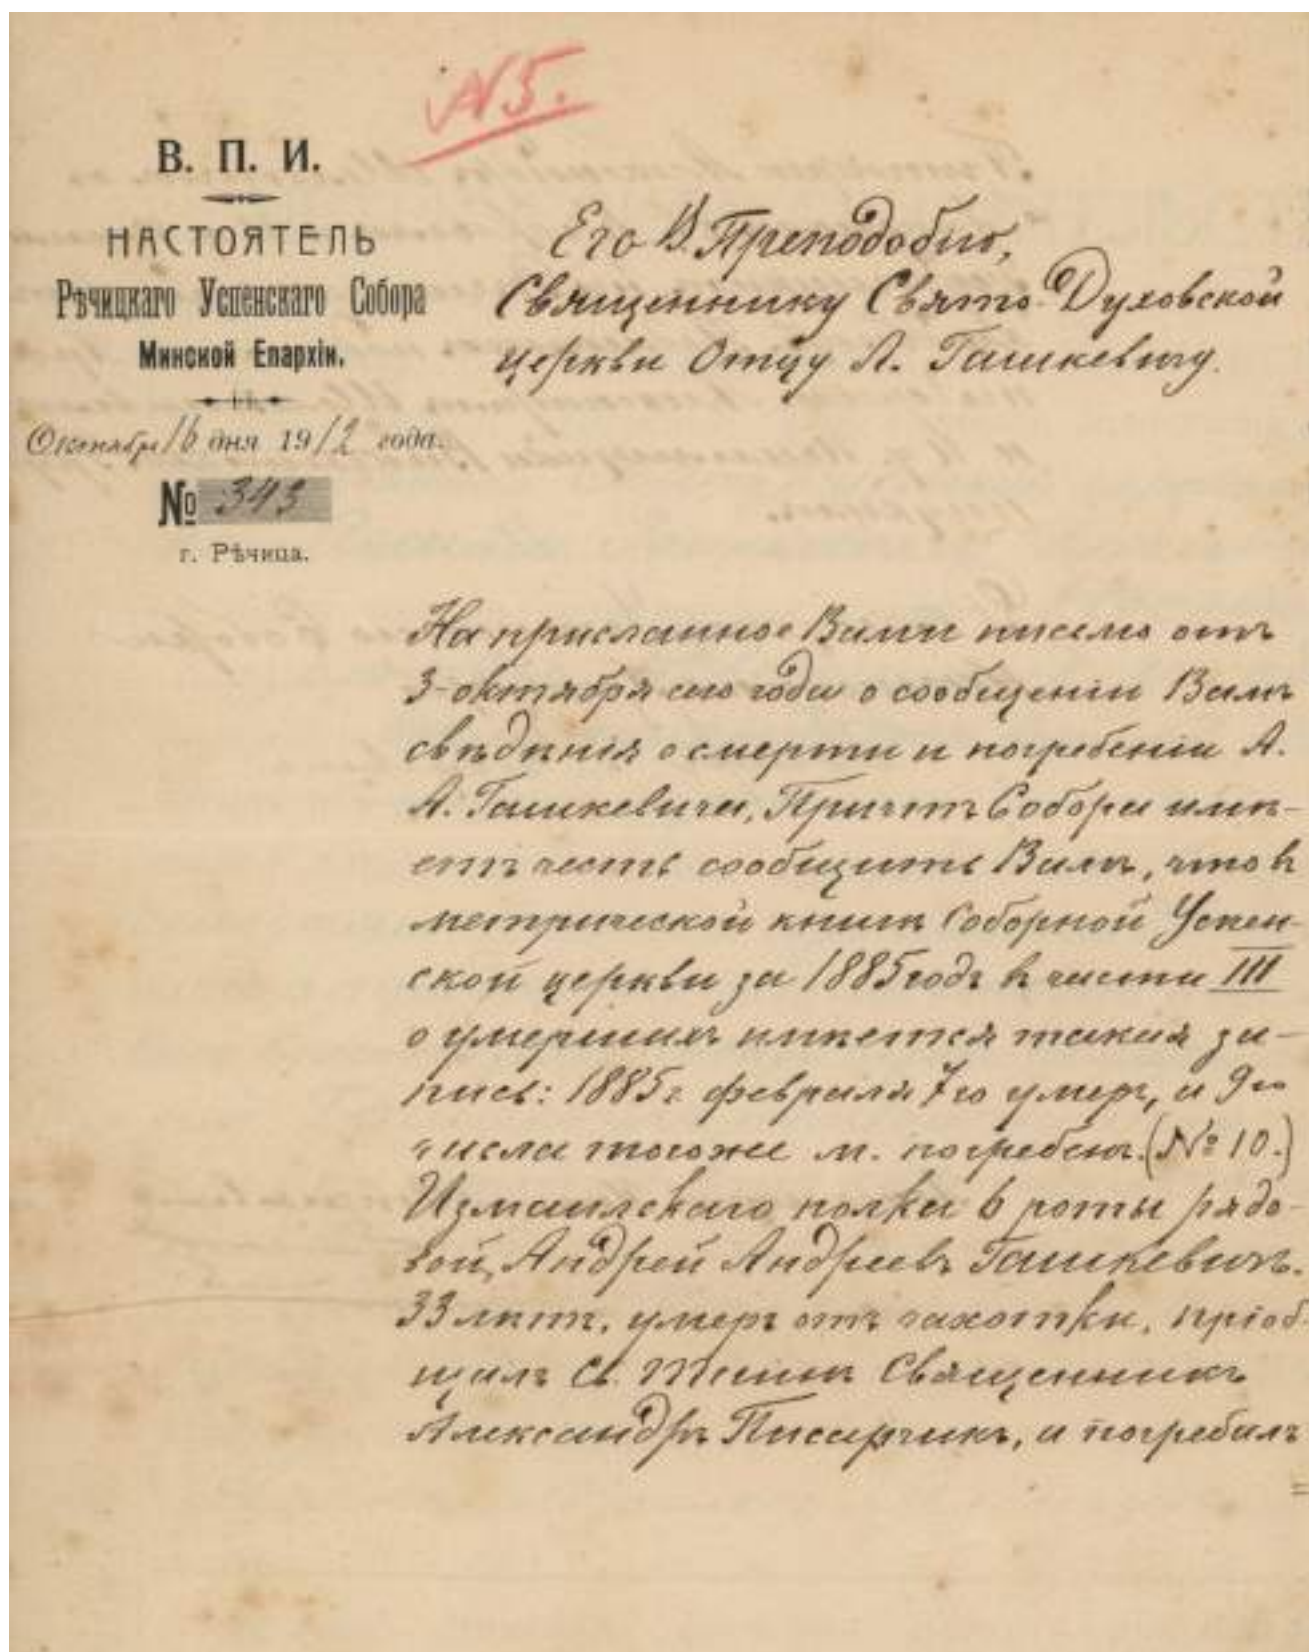 N5.
В. П. И.
НАСТОЯТЕЛЬ
Рѣчицкаго Успенскаго Собора
Минской Епархіи.
Октября 16 дня 1912 года.
№ 343
г. Рѣчица.
Его В. Преподобію,
Священнику Свято-Духовской
церкви Отцу А. Гашкевичу.
На присланное Вами письмо отъ
3-октября сего года о сообщеніи Вамъ
свѣдѣнія о смерти и погребеніи А.
А. Гашкевича, Причтъ Собора имѣ-
етъ честь сообщить Вамъ, что въ
метрической книгѣ Соборной Успен-
ской церкви за 1885 годъ въ части III
о умершихъ имѣется такая за-
пись: 1885 г. февраля 7го умеръ, и 9го
числа тогоже м. погребенъ. (№ 10.)
Измаильскаго полка 6 роты рядо-
вой, Андрей Андреевъ Гашкевичъ.
33 лѣтъ, умеръ отъ чахотки, пріоб-
щалъ Св. Таинъ Священникъ
Александръ Писарчикъ, и погребалъ
=